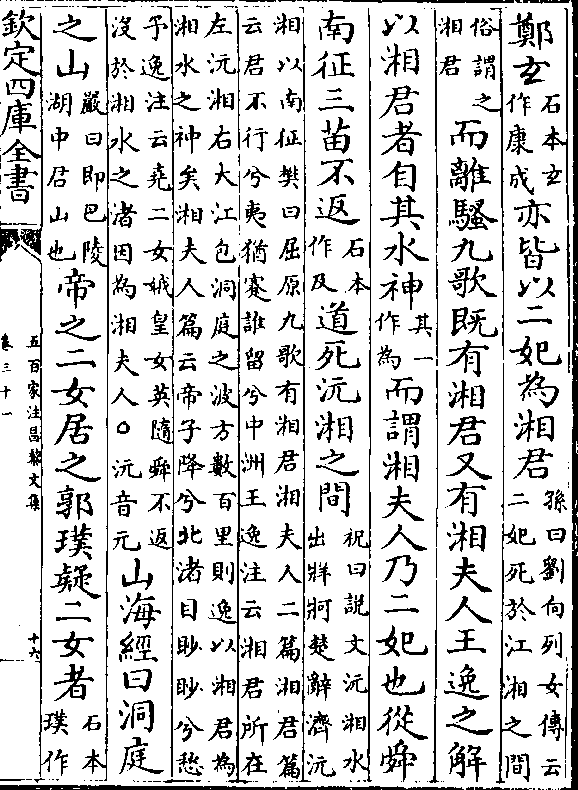 鄭玄石本玄作康成亦皆以二妃為湘君孫曰劉向列女傳云二妃死於江湘之間
俗謂之湘君而離騷九歌既有湘君又有湘夫人王逸之解
以湘君者自其水神其一作為而謂湘夫人乃二妃也從舜
南征三苗不返石本作及道死沅湘之間祝曰說文沅湘水出牂牁楚辭濟沅
湘以南征樊曰屈原九歌有湘君湘夫人二篇湘君篇
云君不行兮夷猶蹇誰留兮中洲王逸注云湘君所在
左沅湘右大江包洞庭之波方數百里則逸以湘君為
湘水之神矣湘夫人篇云帝子降兮北渚目眇眇兮愁
予逸注云堯二女娥皇女英隨舜不返
沒於湘水之渚因為湘夫人○沅音元山海經曰洞庭
之山嚴曰即巴陵湖中君山也帝之二女居之郭璞疑二女者石本璞作
欽定四庫全書
五百家注昌黎文集
卷三十一
十六